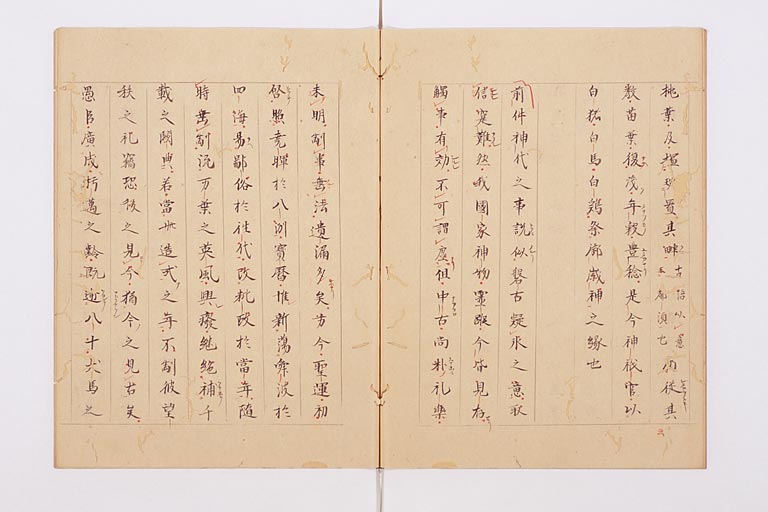 桃葉及塩班置其畔古語以薏玉都須也仍従其
教苗葉復茂年穀豊稔是今神祇官以
白猪白馬白鶏祭御歳神之縁也
前件神代之事説似磐古疑氷之意取
信寔難然我國家神物霊蹤今皆見存
觸事有効不可謂虚但中古尚朴礼樂
未明制事垂法遺漏多矣方今聖運初
啓照尭暉於八洲寳暦惟新蕩舜波於
四海易鄙俗於往代改粃政於當年随
時垂制流万葉之英風興癈継絶補千
載之闕典若當此造式之年不制彼望
秩之礼竊恐後之見今猶今之見古矣
愚臣廣成朽邁之齢既逾八十犬馬之